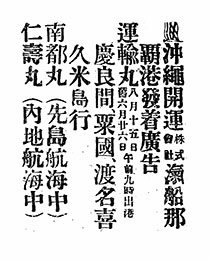 沖繩開運株式會社滊船那
覇港發着廣告
運輸丸八月十五日午前九時出港
舊六月廿六日
慶良間、粟國、渡名喜
久米島行
南都丸（先島航海中）
仁壽丸（內地航海中）